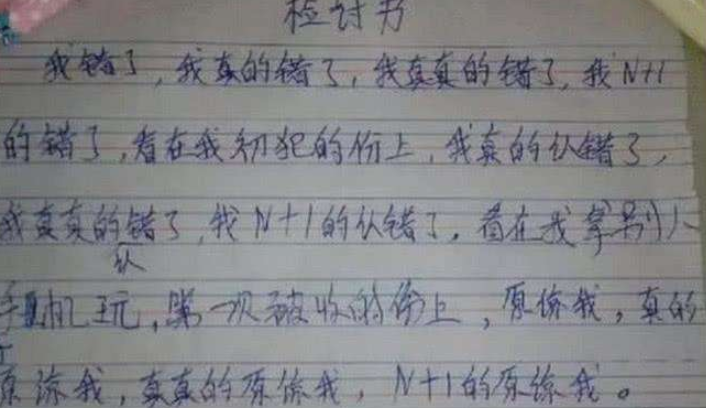 检讨书
我错了，我真的错了，我真真的错了，我N+1
的错了，看在我初犯的份上，我真的认错了，
我真真的认错了，我N+1的认错了，看在我拿别人
手机玩，第一次被收的份上，原谅我，真的
原谅我，真真的原谅我，N+1的原谅我。